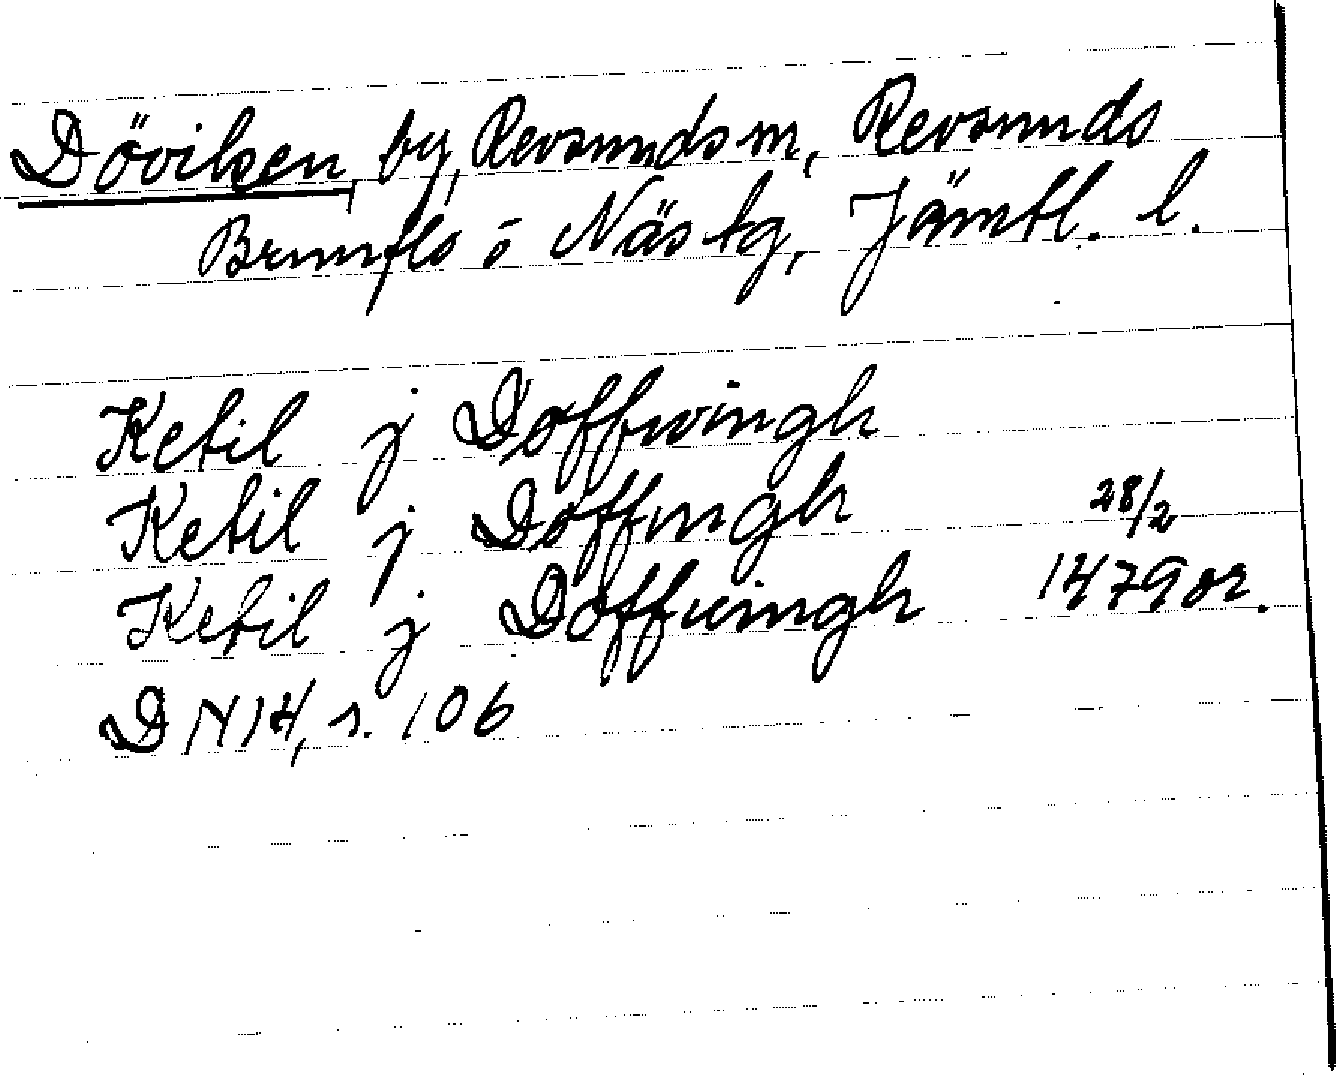 Döviken, by, Revsunds sn, Revsunds
Brunflo o Näs tg, Jämtl. l.
Ketil j Døffwingh
Ketil j Döffingh 28/2
Ketil j Døffuingh 1479 or.
DN 14, s. 106